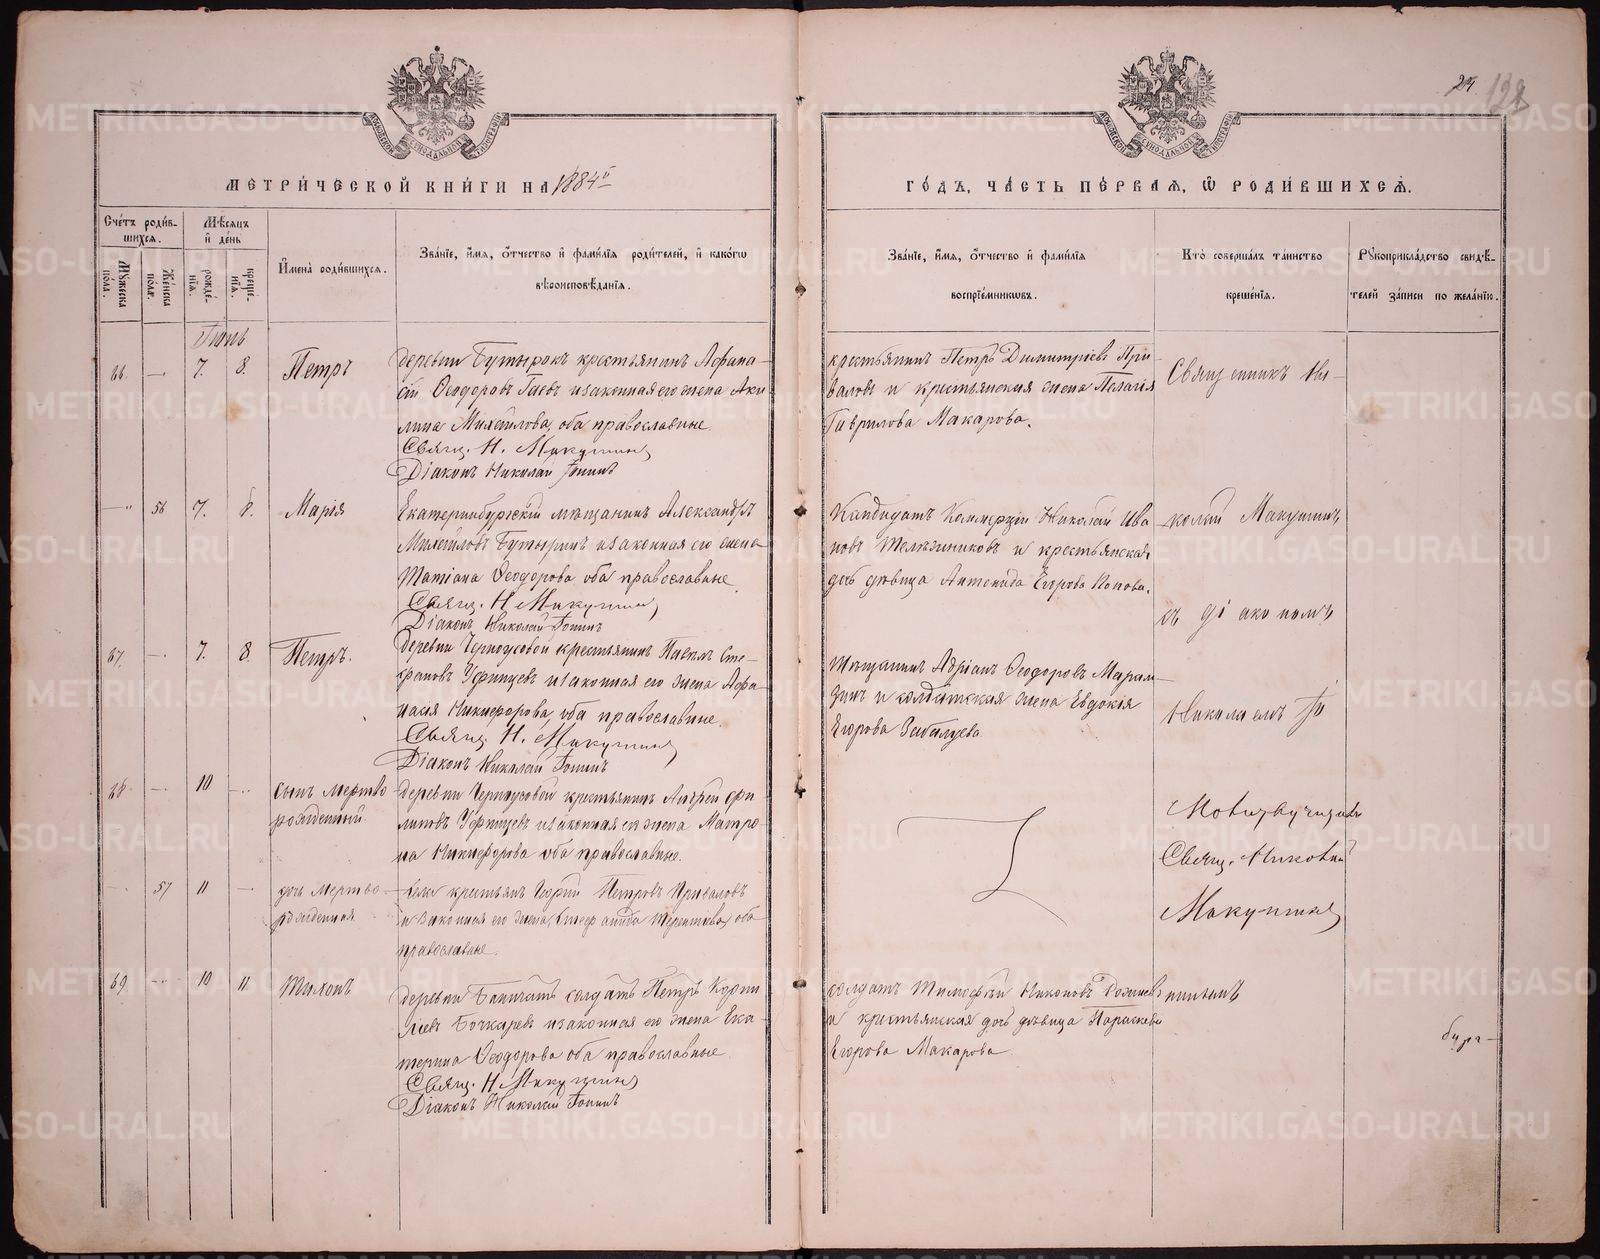 24
128
МОСКОВСКОЙ СѴНОДАЛЬНОЙ ТИПОГРАФІИ
МОСКОВСКОЙ СѴНОДАЛЬНОЙ ТИПОГРАФІИ
МЕТРИ́ЧЕСКОЙ КНИ́ГИ НА 1884й
ГО́ДЪ, ЧА́СТЬ ПЕ́РВАЯ, Ѽ РОДИ́ВШИХСѦ.
Сче́тъ роди́в-
шихсѧ.
Мꙋжеска пола.
Же́нска полꙋ.
Мѣ́сѧцъ
и́ де́нь
рожде́-
нїѧ.
креще́-
нїѧ.
И́мена̀ роди́вшихсѧ.
Зва́нїе, и́мѧ, ѻ҆́тчество и҆ фами́лїѧ роди́телей, и҆ како́гѡ
вѣроисповѣ́данїѧ.
Зва́нїе, и́мѧ, ѻ҆́тчество и҆ фами́лїѧ
воспрїе́мникѡвъ.
Кто̀ соверша́лъ та́инство
креще́нїѧ.
Рꙋкоприкла́дство свидѣ́-
телей за́писи по жела́нїю.
Іюнь
66. — 7. 8. Петръ
деревни Бутырокъ крестьянинъ Афана-
сій Ѳеодоровъ Гаевъ и законная его жена Аки-
лина Михайлова, оба православные.
Свящ. Н. Макушинъ
Діаконъ Николай Гонинъ
крестьянинъ Петръ Димитріевъ При-
валовъ и крестьянская жена Пелагія
Гаврилова Макарова.
Священникъ Ни-
— 56 7. 8. Марія
Екатеринбургскій мѣщанинъ Александръ
Михайловъ Бутыринъ и законная его жена
Татіана Ѳеодорова оба православные.
Свящ. Н. Макушинъ
Діаконъ Николай Гонинъ
Кандидатъ Коммерціи Николай Ива-
новъ Телѣжниковъ и крестьянская
дочь дѣвица Антонида Егорова Попова.
колай Макушинъ
съ діакономъ
67. — 7. 8. Петръ.
деревни Черноусовой крестьянинъ Павелъ Сте-
фановъ Уфинцевъ и законная его жена Афа-
насія Никифорова, оба православные.
Свящ. Н. Макушинъ
Діаконъ Николай Гонинъ
Мѣщанинъ Адріанъ Ѳеодоровъ
и солдатская жена Евдокія
Егорова
Николаемъ Го-
68 — 10 — сынъ мертво-
рожденный
деревни Черноусовой крестьянинъ Андрей Фи-
липовъ Уфинцевъ и законная его жена Матро-
на Никифорова оба православные.
Свящ. Николай
Макушинъ
— 57 11 — дочь мертво-
рожденная
села крестьян. Георгій Петровъ Приваловъ
и законная его жена оба
православные.
69 — 10 11 Тихонъ
деревни солдатъ Петръ Корни-
ліевъ Бочкаревъ и законная его жена Ека-
терина Ѳеодорова оба православные.
Свящ. Н. Макушинъ
Діаконъ Николай Гонинъ
солдатъ Тимофей Никоновъ
и крестьянская дочь дѣвица Параскева
Егорова Макарова.
нинымъ